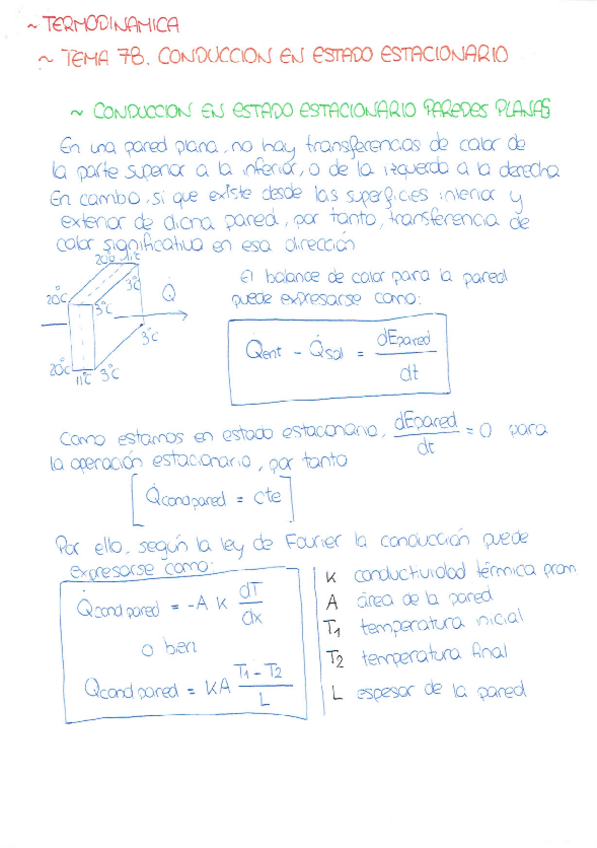 ~ TERMODINAMICA
~ TEMA 7B. CONDUCCION EN ESTADO ESTACIONARIO
~ CONDUCCION EN ESTADO ESTACIONARIO PAREDES PLANAS
En una pared plana, no hay transferencias de calor de
la parte superior a la inferior, o de la izquierda a la derecha
En cambio, si que existe desde las superficies interior y
exterior de dicha pared, por tanto, transferencia de
calor significativa en esa dirección
20°C 11°C
3°C
20°C
3°C
Q̇
3°C
20°C
11°C 3°C
El balance de calor para la pared
puede expresarse como:
Q̇ent - Q̇sal = dEpared / dt
Como estamos en estado estacionario, dEpared / dt = 0 para
la operación estacionario, por tanto
[Q̇cond pared = cte]
Por ello, según la ley de Fourier la conducción puede
expresarse como:
Q̇cond pared = -A K dT / dx
o bien
Q̇cond pared = KA T1 - T2 / L
K conductividad térmica prom
A área de la pared
T1 temperatura inicial
T2 temperatura final
L espesor de la pared